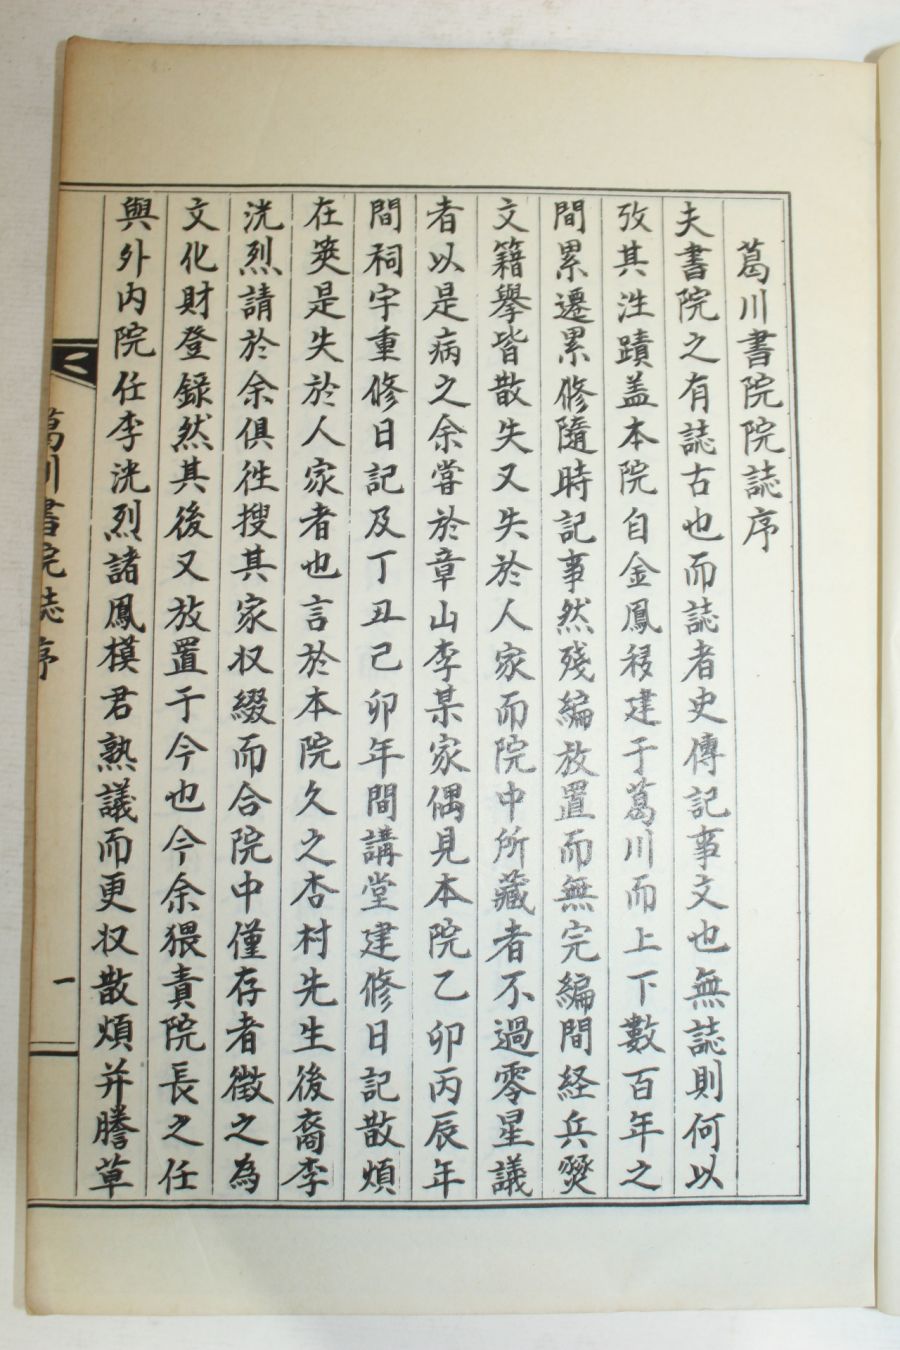 葛川書院院誌序
夫書院之有誌古也而誌者史傳記事文也無誌則何以
攷其徃蹟盖本院自金鳳移建于葛川而上下數百年之
間累遷累修隨時記事然殘編放置而無完編間経兵燹
文籍擧皆散失又失於人家而院中所藏者不過零星議
者以是病之余嘗於章山李某家偶見本院乙卯丙辰年
間祠宇重修日記及丁丑己卯年間講堂建修日記散煩
在筴是失於人家者也言於本院久之杏村先生後裔李
洸烈請於余俱徃搜其家収綴而合院中僅存者徵之為
文化財登録然其後又放置于今也今余猥責院長之任
與外内院任李洸烈諸鳳模君熟議而更収散煩并謄草
葛川書院誌序
一